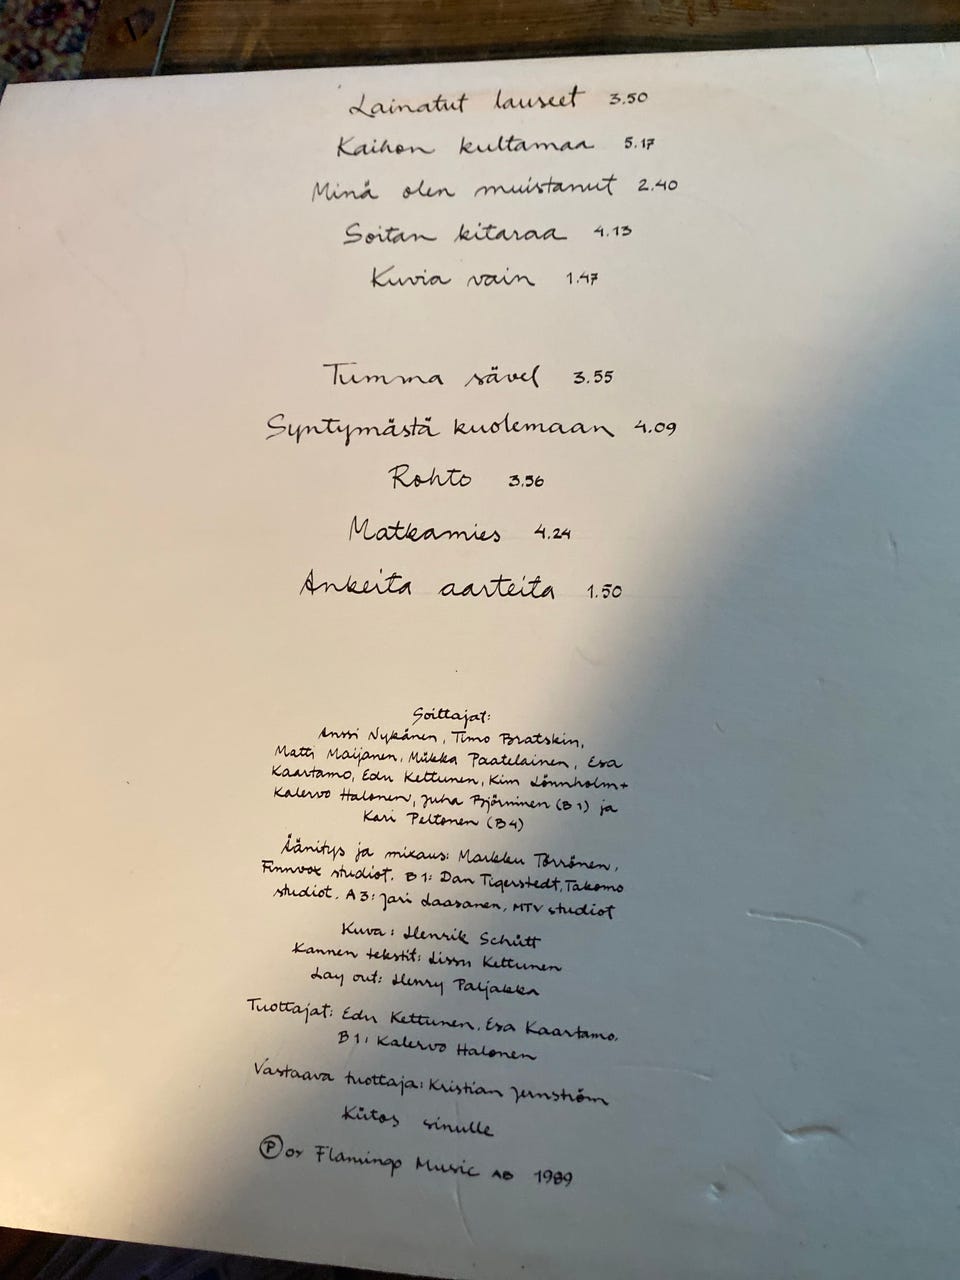 Lainatut lauseet 3.50
Kaihon kultamaa 5.17
Minä olen muistanut 2.40
Soitan kitaraa 4.13
Kuvia vain 1.47
Tumma sävel 3.55
Syntymästä kuolemaan 4.09
Rohto 3.56
Matkamies 4.24
Ankeita aarteita 1.50
Soittajat:
Anssi Nykänen, Timo Bratskin,
Matti Maijanen, Miikka Paatelainen, Esa
Kaartamo, Edu Kettunen, Kim Lönnholm+
Kalervo Halonen, Juha Björninen (B1) ja
Kari Peltonen (B4)
Äänitys ja mixaus: Markku Törrönen,
Finnvox studiot. B1: Dan Tigerstedt, Takomo
studiot. A3: Jari Laasanen, MTV studiot
Kuva: Henrik Schütt
Kannen tekstit: Lissu Kettunen
Lay out: Henry Paljakka
Tuottajat: Edu Kettunen, Esa Kaartamo.
B1: Kalervo Halonen
Vastaava tuottaja: Kristian Jernström
Kiitos sinulle
Ⓟ oy Flamingo Music AB 1989